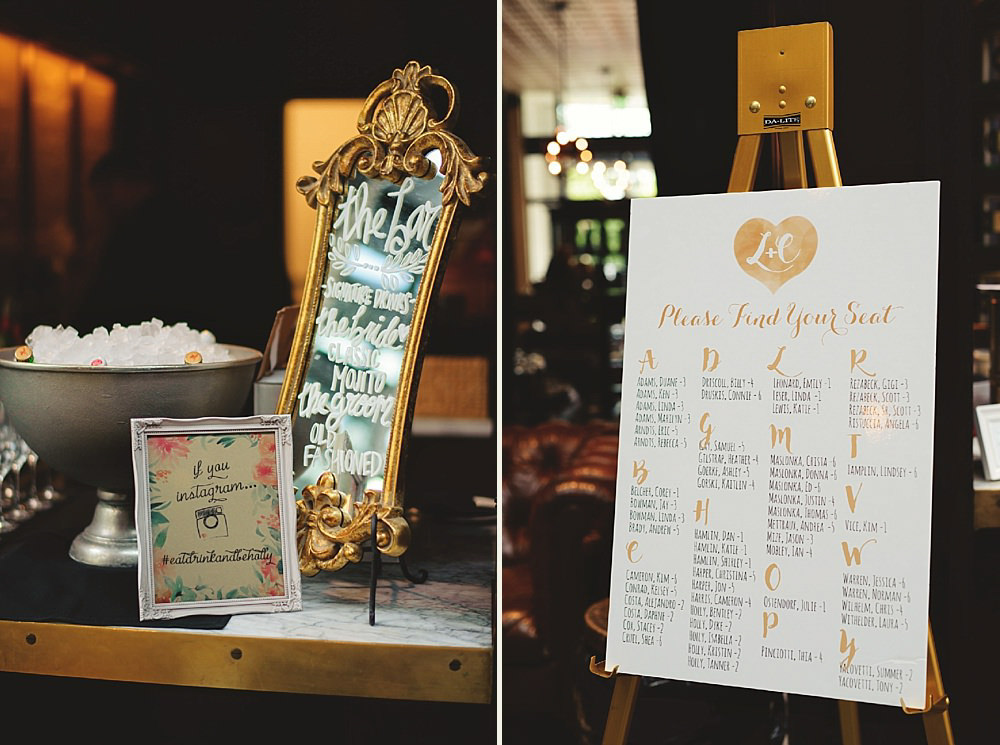 the bar
SIGNATURE DRINKS
the bride
CLASSIC
MOJITO
the groom
OLD
FASHIONED
if you
instagram...
#eatdrinkandbeholly
DA-LITE
L+C
Please Find Your Seat
A
ADAMS, DUANE -3
ADAMS, KEN -3
ADAMS, LINDA -3
ADAMS, MARILYN -3
ARNDTS, ERIC -5
ARNDTS, REBECCA -5
B
BELCHER, COREY -1
BOWMAN, JAY -3
BOWMAN, LINDA -3
BRADY, ANDREW -5
C
CAMERON, KIM -6
CONRAD, KELSEY -5
COSTA, ALEJANDRO -2
COSTA, DAPHNE -2
COX, STACEY -2
SHEA -6
D
DRISCOLL, BILLY -4
DRUSKIS, CONNIE -6
G
SAMUEL -5
GILSTRAP, HEATHER -4
GOERKE, ASHLEY -5
GORSKI, KAITLIN -4
H
HAMLIN, DAN -1
HAMLIN, KATIE -1
HAMLIN, SHIRLEY -1
HARPER, CHRISTINA -5
HARPER, JON -5
HARRIS, CAMERON -4
HOLLY, BENTLEY -2
HOLLY, DYKE -2
HOLLY, ISABELLA -2
HOLLY, KRISTIN -2
HOLLY, TANNER -2
L
LEONARD, EMILY -1
LESER, LINDA -1
LEWIS, KATIE -1
M
MASLONKA, CHRISTA -6
MASLONKA, DONNA -6
MASLONKA, ED -6
MASLONKA, JUSTIN -4
MASLONKA, THOMAS -6
METTRAUX, ANDREA -5
MIZE, JASON -3
MOBLEY, IAN -4
O
OSTENDORF, JULIE -1
P
PINCIOTTI, THIA -4
R
REZABECK, GIGI -3
REZABECK, SCOTT -3
REZABECK, SR, SCOTT -3
RESTUCCIA, ANGELA -6
T
TAMPLIN, LINDSEY -6
V
VICE, KIM -1
W
WARREN, JESSICA -6
WARREN, NORMAN -6
WILHELM, CHRIS -4
WITHELDER, LAURA -5
Y
YACOVETTI, SUMMER -2
YACOVETTI, TONY -2